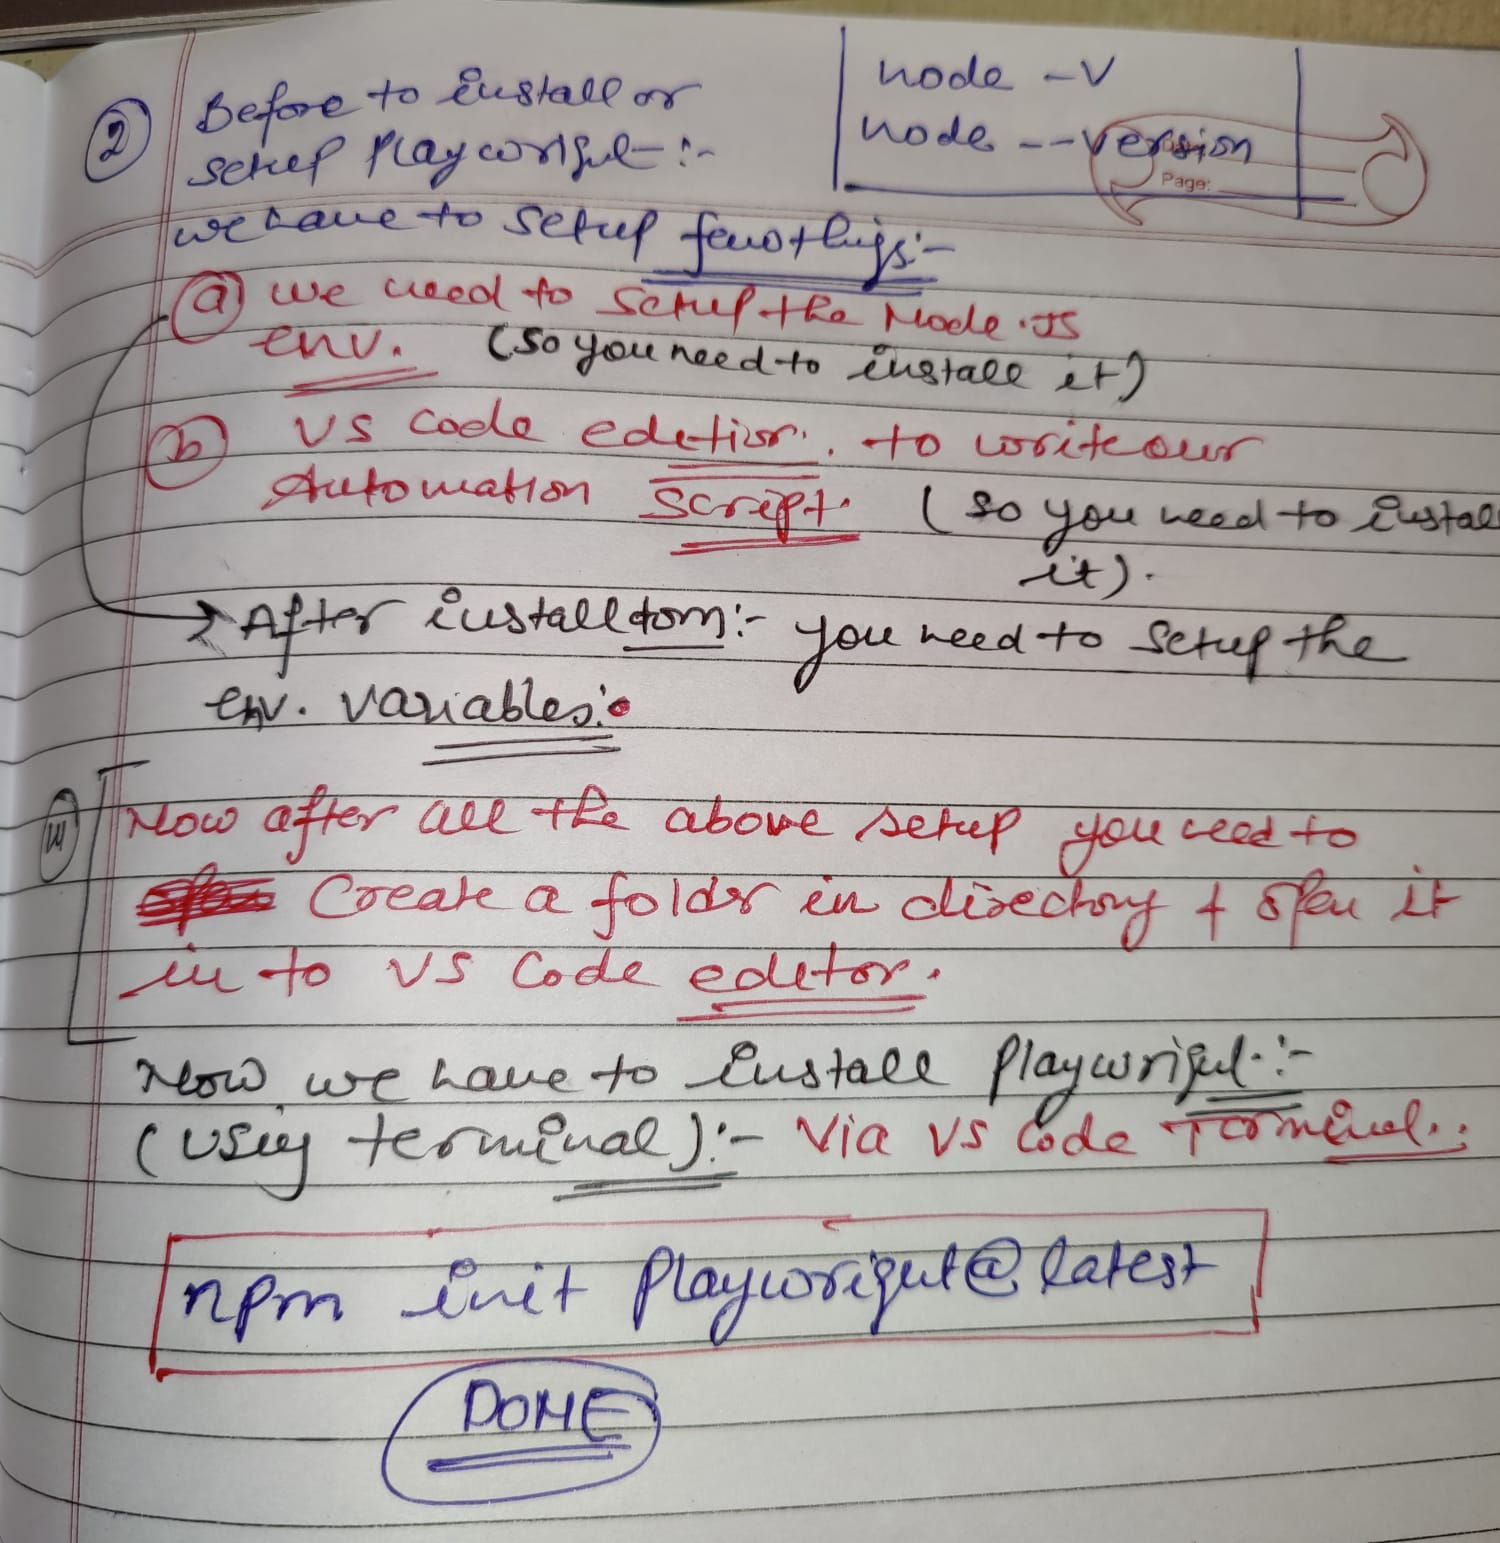 ② Before to install or
setup Playwright :-
node -v
node --version
Page:
we have to setup few things:-
ⓐ we need to setup the Node.JS
env. (So you need to install it)
ⓑ VS Code editior. to write our
Automation Script. (So you need to install
it).
→ After installtom:- you need to setup the
env. variables:
Now after all the above setup you need to
Create a folder in directory & open it
in to VS Code editor.
Now, we have to install Playwright.:-
(using terminal):- Via VS Code Terminal.:
npm init Playwright@latest
DONE